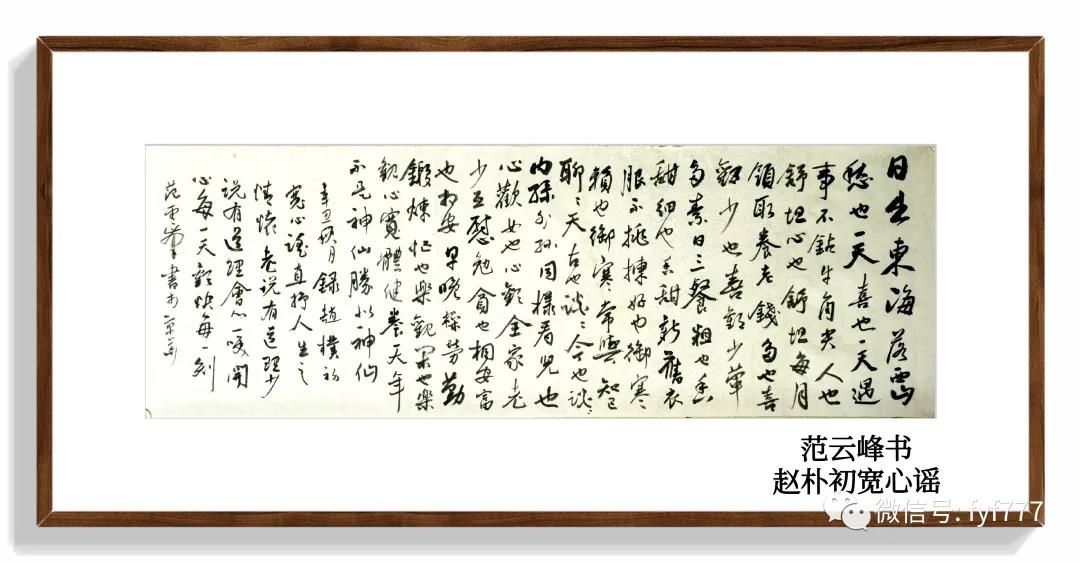 日出東海落西山
愁也一天喜也一天遇
事不鉆牛角尖人也
舒坦心也舒坦每月
領取養老錢多也喜
歡少也喜歡少葷
多素日三餐粗也香
甜細也香甜新舊衣
服不挑揀好也御寒
賴也御寒常與知己
聊々天古也談々今也談々
内孫外孫同樣看兒也
心歡女也心歡全家老
少互慰勉貧也相安富
也相安早晚操勞勤
鍛煉忙也樂觀閑也樂
觀心寬體健養天年
不是神仙勝似神仙
辛丑秋月錄趙樸初
寬心謠直抒人生之
情懷老說有道理少
說有道理會心一開
心每一天歡快每一刻
范雲峰書於京華
范云峰书
赵朴初宽心谣
微信号: fyf777